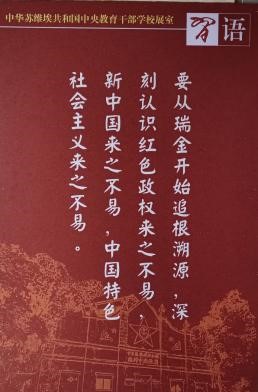 中华苏维埃共和国中央教育干部学校展室
习语
要从瑞金开始追根溯源,深
刻认识红色政权来之不易,
新中国来之不易,中国特色
社会主义来之不易。